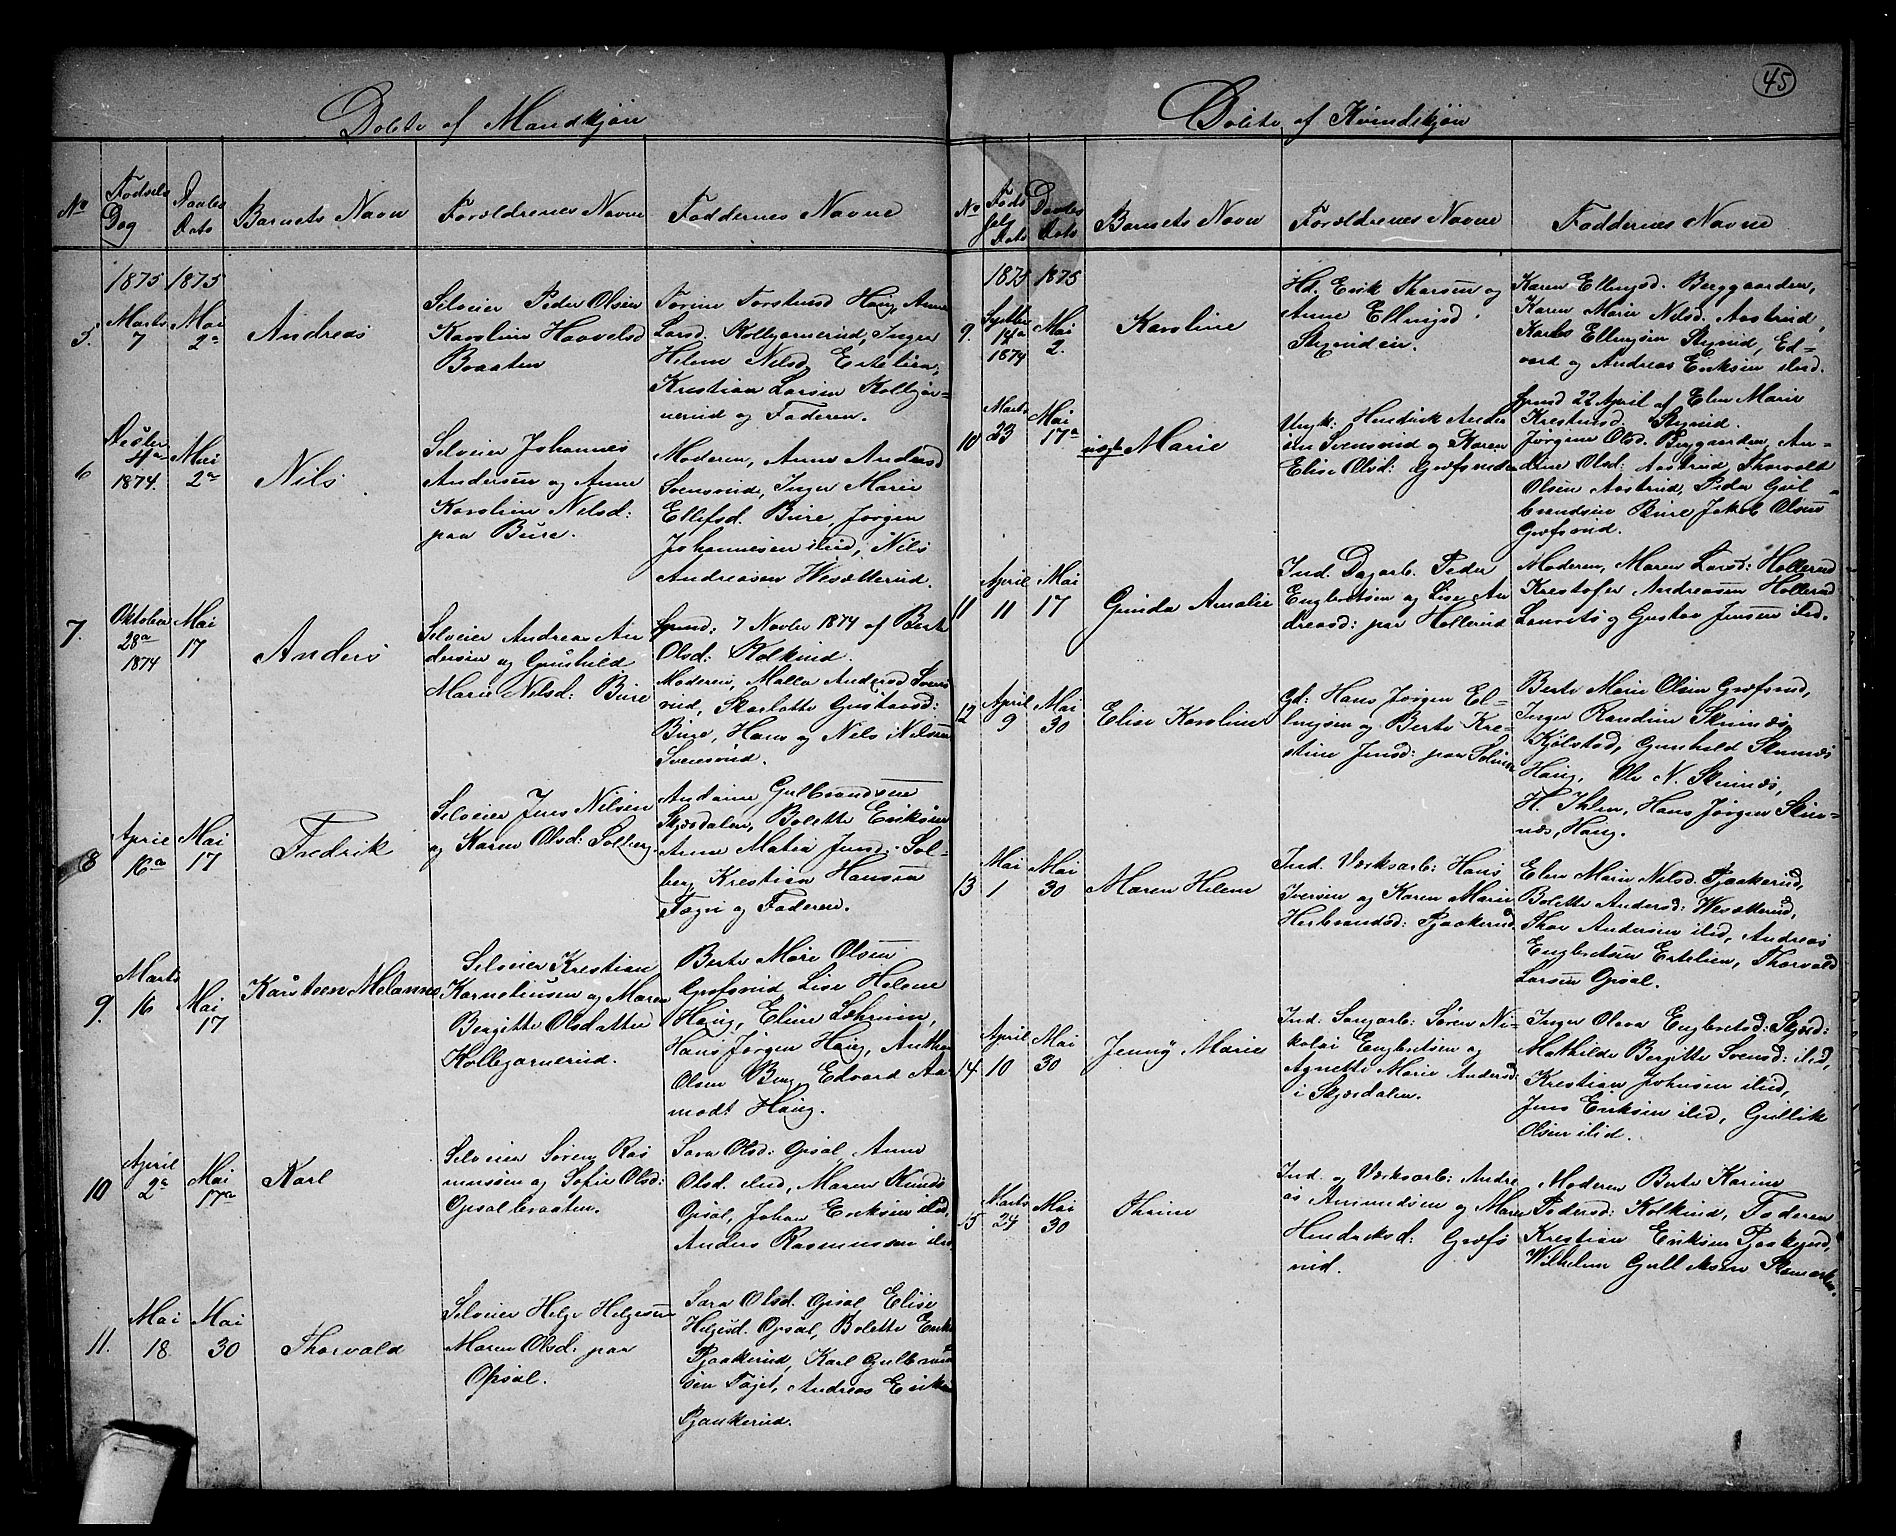 45
Döbte af Mandkjön
No
Födsels
Dag
Daabs
Dato
Barnets Navn
Forældrenes Navne
Faddernes Navne
1875 1875
5. Marts 7
Mai 2a
Andreas
Selveier Peder Olsen
Karoline Haavelsd
Braaten
Torine Torstensd Haug, Anne
Larsd. Kolbjörnerud, Inger
Helene Nilsd Ertelien,
Kristian Larsen Kolbjör-
nerud og Faderen.
6
4a
1874.
Mai 2a
Nils
Selveier Johannes
Andersen og Anne
Karoline Nilsd:
paa Bure.
Moderen, Anne Andersd
Svensrud, Inger Marie
Ellefsd. Bure, Jörgen
Johannesen ibid, Nils
Andreasen Wesætterud.
7. Oktober
28a
1874
Mai 17
Anders
Selveier Andreas An
dersen og Gunhild
Marie Nilsd: Bure
7 Novbr 1874 af Berte
Olsd: Kolkind.
Moderen, Malla Andersd Svens
rud, Skarlotte Gustavsd:
Bure, Hans og Nils Nilsen
Svensrud.
8 April
16a
Mai 17
Fredrik
Selveier Jens Nilsen
og Karen Olsd: Solberg.
Gulbrandsen
Skjærdalen, Bolette Eriksen
Anne Matia Jensd. Sol-
berg, Krestian Hansen
og Faderen.
9. Marts
16
Mai 17
Selveier Krestian
Karneliussen og Maren
Bergitte Olsdatter
Berte Marie Olsen
Grøfsrud, Lise Helene
Haug, Eline
Hans Jörgen Haug, Anthon
Olsen Berg, Edvard Aa-
modt Haug.
10 April
2a
Mai 17a
Karl
Selveier Sören Ras
mussen og Sofie Olsd:
Opsalbraaten.
Sara Olsd: Opsal, Anne
Olsd. ibid, Maren Knuds
Opsal, Johan Eriksen ibid,
Anders Rasmussen ibid
11. Mai
18
Mai 30
Thorvald
Selveier Helge Helgesen
Maren Olsd: paa
Opsal.
Sara Olsd. Opsal, Elise
Helgesd. Opsal, Bolette Eriks
Pjaakerud, Karl Gulbrand
sen Föjet, Andreas Eriksen
Pjaakerud.
Döbte af Kvindekjön
No
Föds
sels
Dato
Daabs
Dato
Barnets Navn
Forældrenes Navne
Faddernes Navne
1875 1875
9.
14a
1874
Mai 2.
Karoline
Hd. Erik Tharsen og
Anne Ellingsd.
Karen Ellingsd. Berggaarden,
Karen Marie Nilsd. Aastrud,
Karles Ellingsen Stqrud, Ed-
vard og Andreas Eriksen ibid.
10 Marts
23
Mai 17a
uægte Marie
Ungk: Hendrik Ander
sen Svensrud og Karen
Elise Olsd: Grøfsrud
22 April af Elen Marie
Jørgine Olsd. Berggaarden, An-
dine Olsd: Aastrud, Thorvald
Olsen Aastrud, Peder Gul-
brandsen Bure, Jakob Olsen
Grøfsrud.
11 April
11
Mai 17
Gunda Amalie
Ind. Dagarb. Peder
Engbretsen og Lise An
dreasd: paa Hollerud
Moderen, Maren Larsd: Hollerud
Krestofer Andreasen Hollerud
Lauvits og Gustav Jensen ibid.
12 April
9
Mai 30
Elise Karoline
Gd: Hans Jörgen El-
lingsen og Berte Kre-
stine Jensd: paa
Berte Marie Olsen Grøfsrud,
Inger Randine Skinnæs
Kjølstad, Gunhild Skinnæs
Haug, Ole N. Skinnæs,
H. Ihlen, Hans Jörgen Skin-
næs, Haug.
13 Mai
1
Mai 30
Maren Helene
Ind. Værksarb: Hans
Iversen og Karen Marie
Herbrandsd: Pjaakerud
Elen Marie Nilsd. Pjaakerud,
Bolette Andersd: Wesætterud,
Thor Andersen ibid, Andreas
Engbretsen Ertelien, Thorvald
Larsen Opsal.
14 April
10
Mai 30
Jenny Marie
Ind: Saugarb: Sören Ni-
kolai Engbretsen og
Agnette Marie Andersd:
i Skjærdalen.
Inger Olava Engbretsd: Skjærd:
Mathilde Bergitte Svensd: ibid,
Krestian Johnsen ibid,
Jens Eriksen ibid, Gullik
Olsen ibid.
15 Marts
24
Mai 30
Thrine
Ind. og Værksarb: Andre
as Amundsen og Maren
Hendriksd: Grøfs
rud.
Moderen Berte Karine
Pedersd: Kolkind, Faderen
Krestian Eriksen Pjaakerud,
Wilhelm Gulliksen